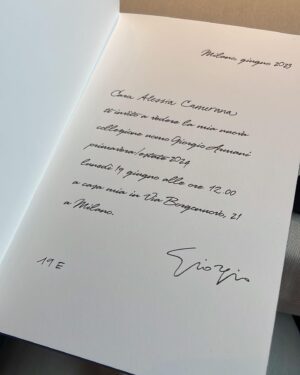 Milano, giugno 2023
Cara Alessia Camerana
ti invito a vedere la mia nuova
collezione uomo Giorgio Armani
primavera/estate 2024
lunedì 19 giugno alle ore 12.00
a casa mia in Via Borgonuovo, 21
a Milano.
Giorgio
19 E